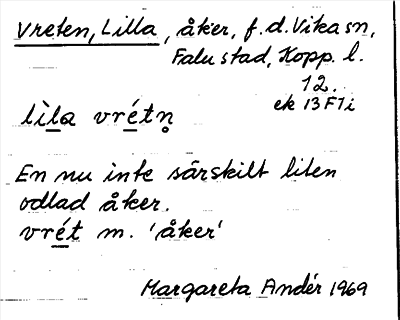 Vreten, Lilla, åker, f.d. Vika sn,
Falu stad, Kopp. l.
12.
ek 13F1i
lìla vrétn̥
En nu inte särskilt liten
odlad åker.
vrét m. 'åker'
Margareta Andér 1969